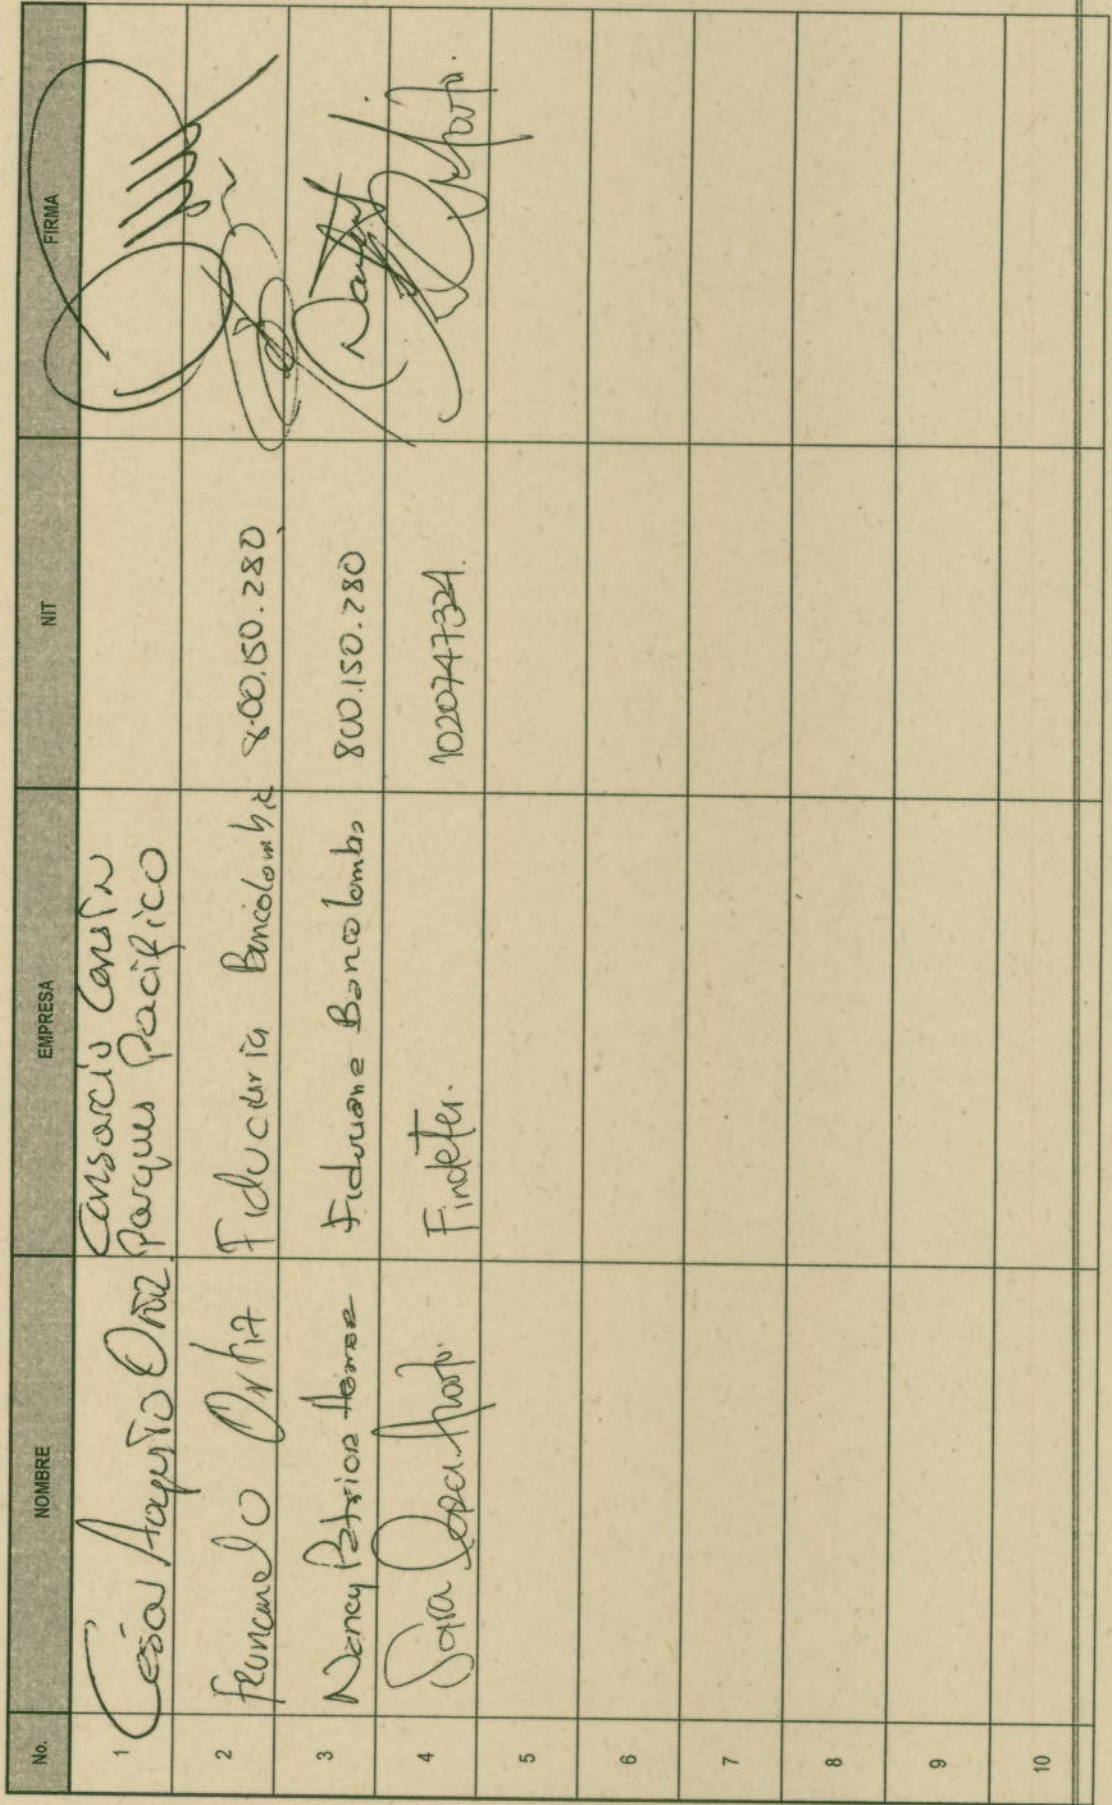 No. NOMBRE EMPRESA NIT FIRMA
1 César Augusto Ortiz. Consorcio Consin
Parques Pacífico
2 Fernando Ortiz Fiduciaria Bancolombia 800.150.280
3 Nancy Patricia Fiduciaria Bancolombia 800.150.280
4 Sara Findeter. 1020747324.
5
6
7
8
9
10